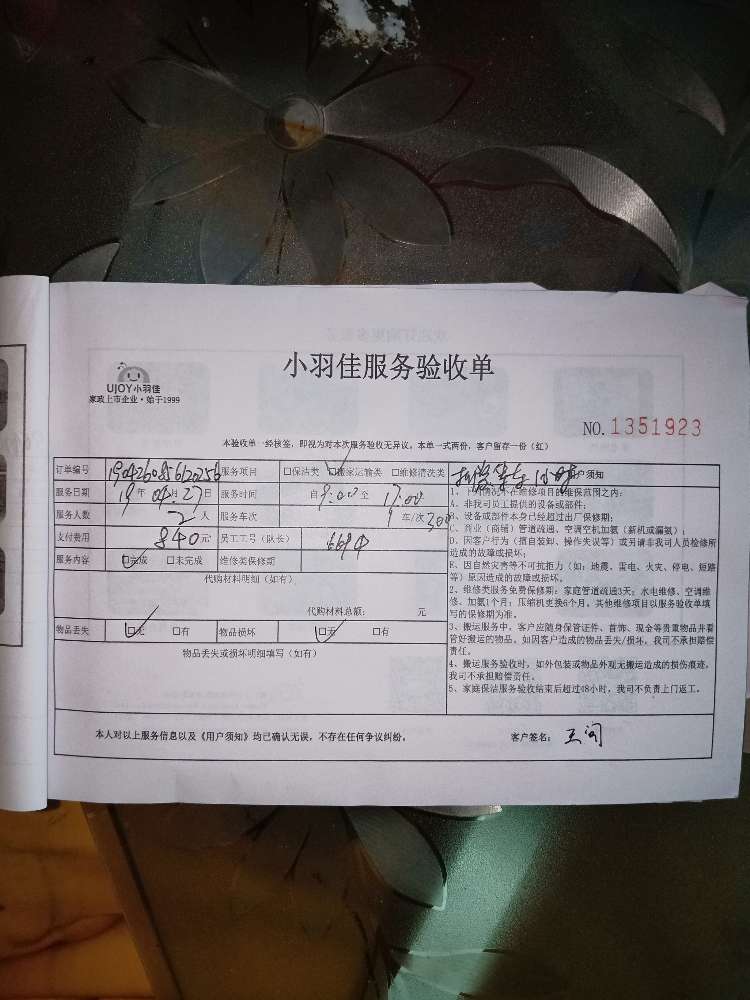 小羽佳服务验收单
UJOY小羽佳
家政上市企业·始于1999
NO.1351923
本验收单一经核签，即视为对本次服务验收无异议。本单一式两份，客户留存一份（红）
订单编号 服务项目 □保洁类 ☑搬家运输类 □维修清洗类
服务日期 19年04月27日 服务时间 自9:00至17:00
服务人数 2人 服务车次 车/次
支付费用 840元 员工工号（队长）
服务内容 ☑完成 □未完成 维修类保修期
代购材料明细（如有）
代购材料总额： 元
物品丢失 ☑无 □有 物品损坏 ☑无 □有
物品丢失或损坏明细填写（如有）
用户须知
1、下列情况不在维修项目的维保范围之内：
A、非我司员工提供的设备或部件；
B、设备或部件本身已经超过出厂保修期；
C、商业（商铺）管道疏通、空调空机加氨（新机或漏氨）；
D、因客户行为（擅自装卸、操作失误等）或另请非我司人员检修所
造成的故障或损坏；
E、因自然灾害等不可抗拒力（如：地震、雷电、火灾、停电、短路
等）原因造成的故障或损坏。
2、维修类服务免费保修期：家庭管道疏通3天；水电维修、空调维
修、加氨1个月；压缩机更换6个月。其他维修项目以服务验收单填
写的保修期为准。
3、搬运服务中，客户应随身保管证件、首饰、现金等贵重物品并看
管好搬运的物品。如因客户造成的物品丢失/损坏，我司不承担赔偿
责任。
4、搬运服务验收时，如外包装或物品外观无搬运造成的损伤痕迹，
我司不承担赔偿责任。
5、家庭保洁服务验收结束后超过48小时，我司不负责上门返工。
本人对以上服务信息以及《用户须知》均已确认无误，不存在任何争议纠纷。 客户签名：